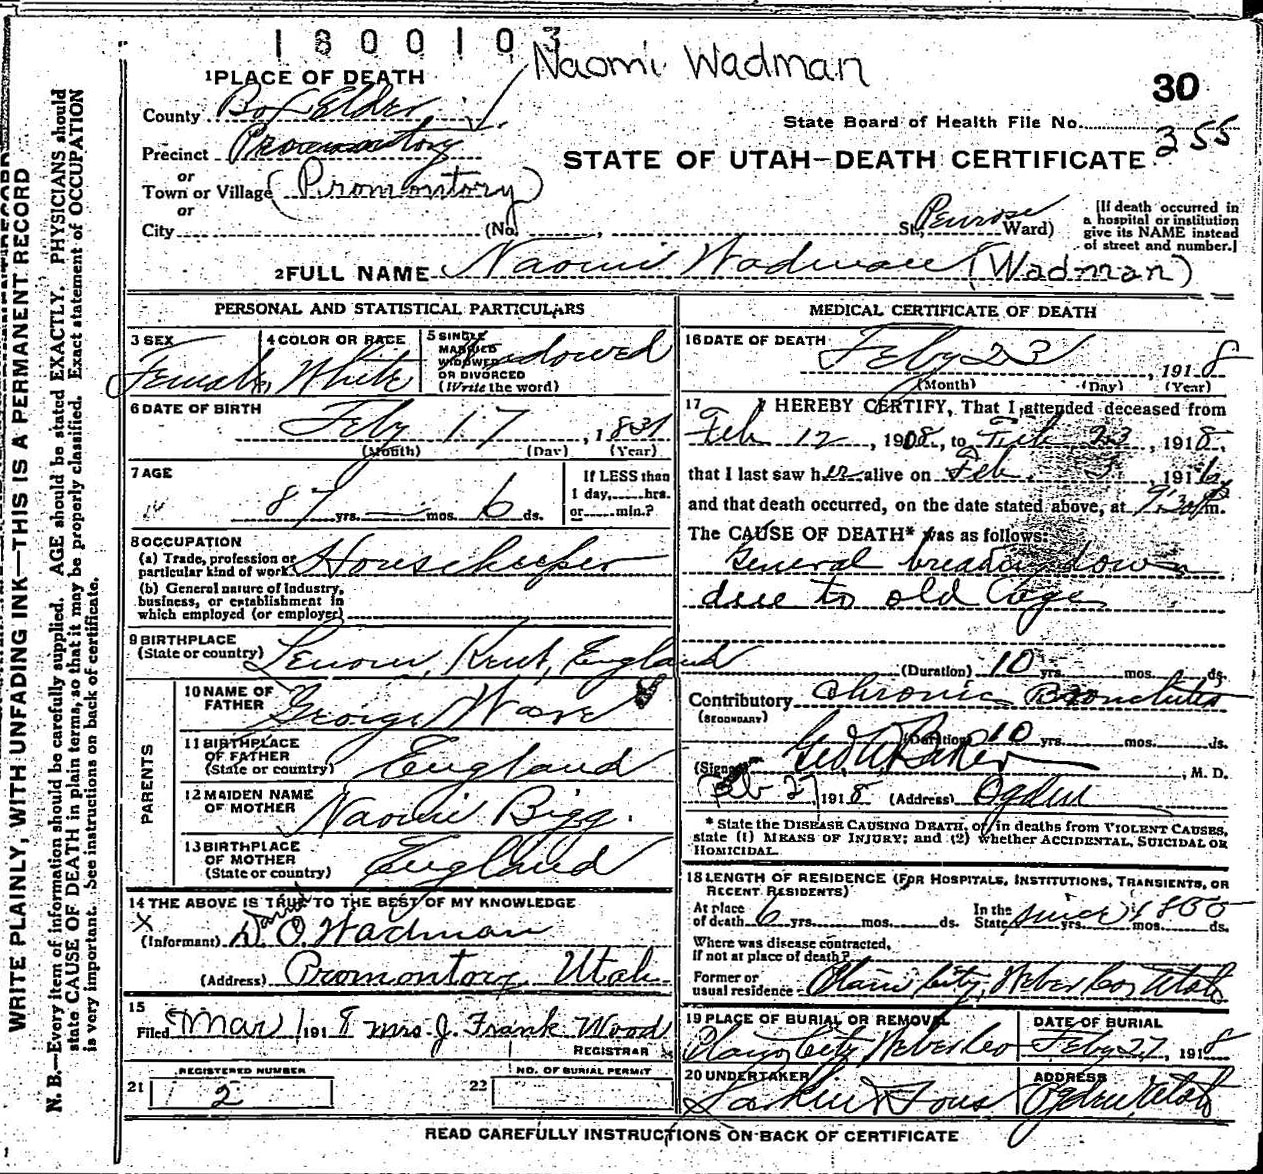 1800103
Naomi Wadman
30
1 PLACE OF DEATH
County Box Elder
State Board of Health File No. 355
Precinct Promontory
STATE OF UTAH—DEATH CERTIFICATE
or
Town or Village (Promontory)
or
City (No. St; Penrose Ward)
[If death occurred in a hospital or institution give its NAME instead of street and number.]
2 FULL NAME Naomi Wadman (Wadman)
PERSONAL AND STATISTICAL PARTICULARS
3 SEX Female
4 COLOR OR RACE White
5 SINGLE MARRIED WIDOWED OR DIVORCED (Write the word) Widowed
6 DATE OF BIRTH Feby 17, 1831
(Month) (Day) (Year)
7 AGE
87 yrs. — mos. 6 ds.
If LESS than 1 day, hrs. or min.?
8 OCCUPATION
(a) Trade, profession or particular kind of work Housekeeper
(b) General nature of industry, business, or establishment in which employed (or employer)
9 BIRTHPLACE
(State or country) Kent, England
PARENTS
10 NAME OF FATHER George
11 BIRTHPLACE OF FATHER (State or country) England
12 MAIDEN NAME OF MOTHER Naomi Bigg.
13 BIRTHPLACE OF MOTHER (State or country) England
14 THE ABOVE IS TRUE TO THE BEST OF MY KNOWLEDGE
X
David
(Informant) D. O. Wadman
(Address) Promontory, Utah
15
Filed Mar 1 1918 Mrs. J. Frank Wood
REGISTRAR
REGISTERED NUMBER
21 2
NO. OF BURIAL PERMIT
22
MEDICAL CERTIFICATE OF DEATH
16 DATE OF DEATH Feby 23, 1918
(Month) (Day) (Year)
17 I HEREBY CERTIFY, That I attended deceased from
Feb 12, 1908, to Feb 23, 1918,
that I last saw her alive on Feb. 191
and that death occurred, on the date stated above, at 9:30 m.
The CAUSE OF DEATH* was as follows:
General breaking down
due to old age
(Duration) 10 yrs. mos. ds.
Contributory Chronic Bronchitis
(SECONDARY)
(Duration) 10 yrs. mos. ds.
(Signed) Geo. W. Baker, M. D.
Feb 27, 1918 (Address) Ogden
* State the DISEASE CAUSING DEATH, or in deaths from VIOLENT CAUSES,
state (1) MEANS OF INJURY; and (2) whether ACCIDENTAL, SUICIDAL OR
HOMICIDAL.
18 LENGTH OF RESIDENCE (FOR HOSPITALS, INSTITUTIONS, TRANSIENTS, OR
RECENT RESIDENTS)
At place of death 6 yrs. mos. ds. In the State since yrs. mos. ds.
Where was disease contracted, if not at place of death?
Former or usual residence Plain City, Weber Co, Utah
19 PLACE OF BURIAL OR REMOVAL
Plain City Weber Co
DATE OF BURIAL
Feby 27, 1918
20 UNDERTAKER
Larkin & Sons
ADDRESS
Ogden, Utah
READ CAREFULLY INSTRUCTIONS ON BACK OF CERTIFICATE
WRITE PLAINLY, WITH UNFADING INK—THIS IS A PERMANENT RECORD
N. B.—Every item of information should be carefully supplied. AGE should be stated EXACTLY. PHYSICIANS should
state CAUSE OF DEATH in plain terms, so that it may be properly classified. Exact statement of OCCUPATION
is very important. See instructions on back of certificate.